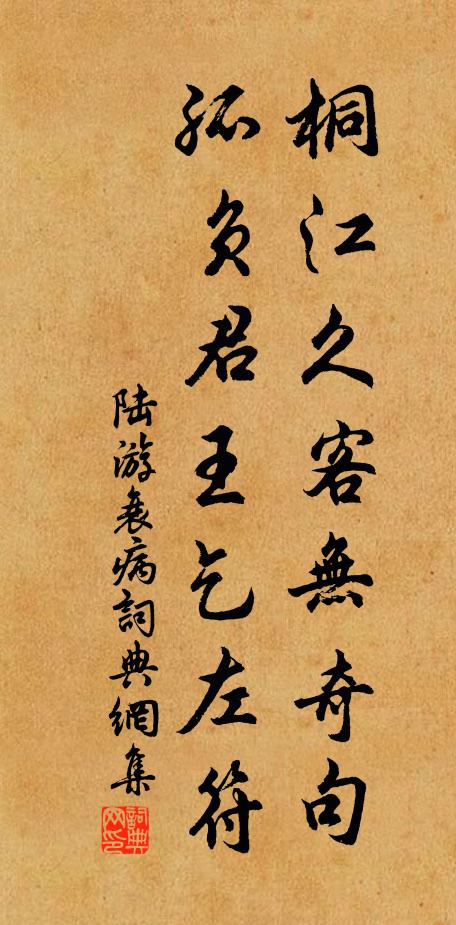 桐江久客無奇句
孤负君王乞左符
陆游衰病詞典網集
詞典网印